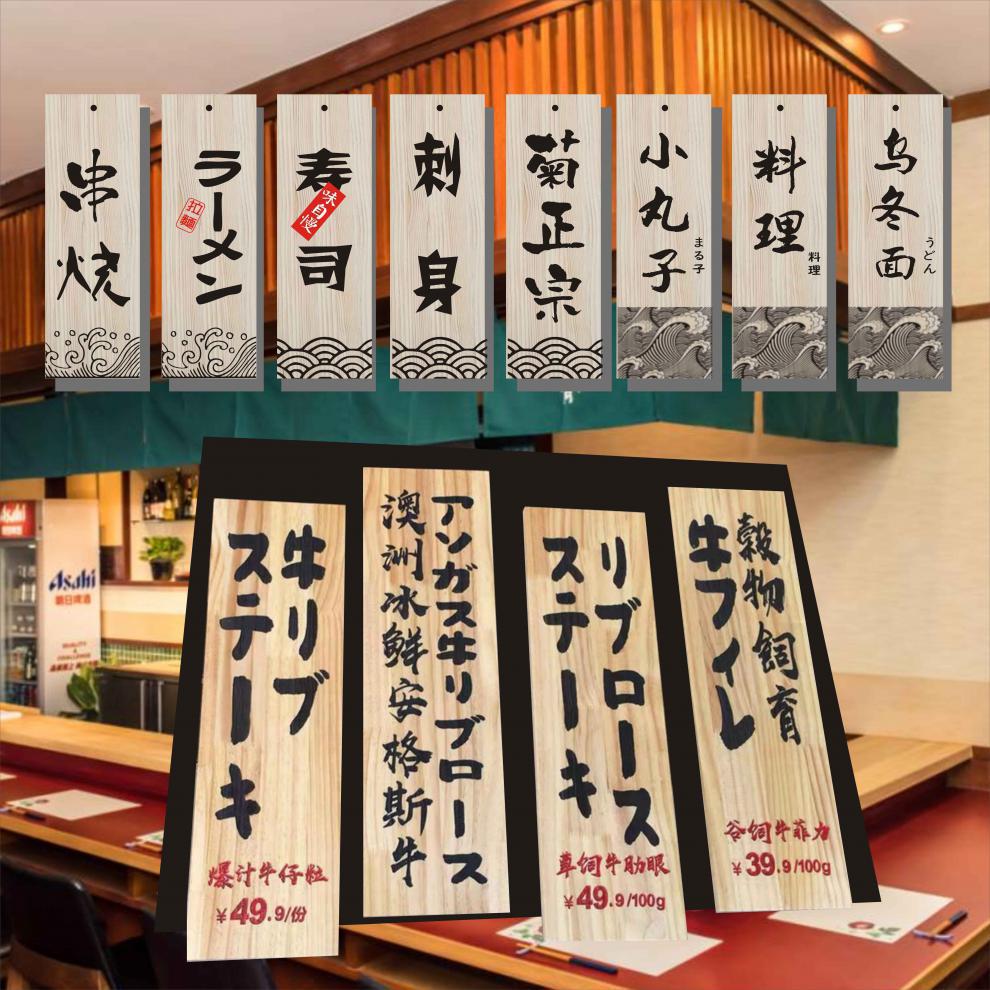 串烧
ラーメン
拉麵
寿司
味自慢
刺身
菊正宗
小丸子
まる子
料理
料理
乌冬面
うどん
Asahi
Asahi
朝日啤酒
QUALITY
&
CHALLENGE
牛リブ
ステーキ
爆汁牛仔粒
¥49.9/份
アンガス牛リブロース
澳洲冰鲜安格斯牛
リブロース
ステーキ
草饲牛肋眼
¥49.9/100g
穀物飼育
牛フィレ
谷饲牛菲力
¥39.9/100g